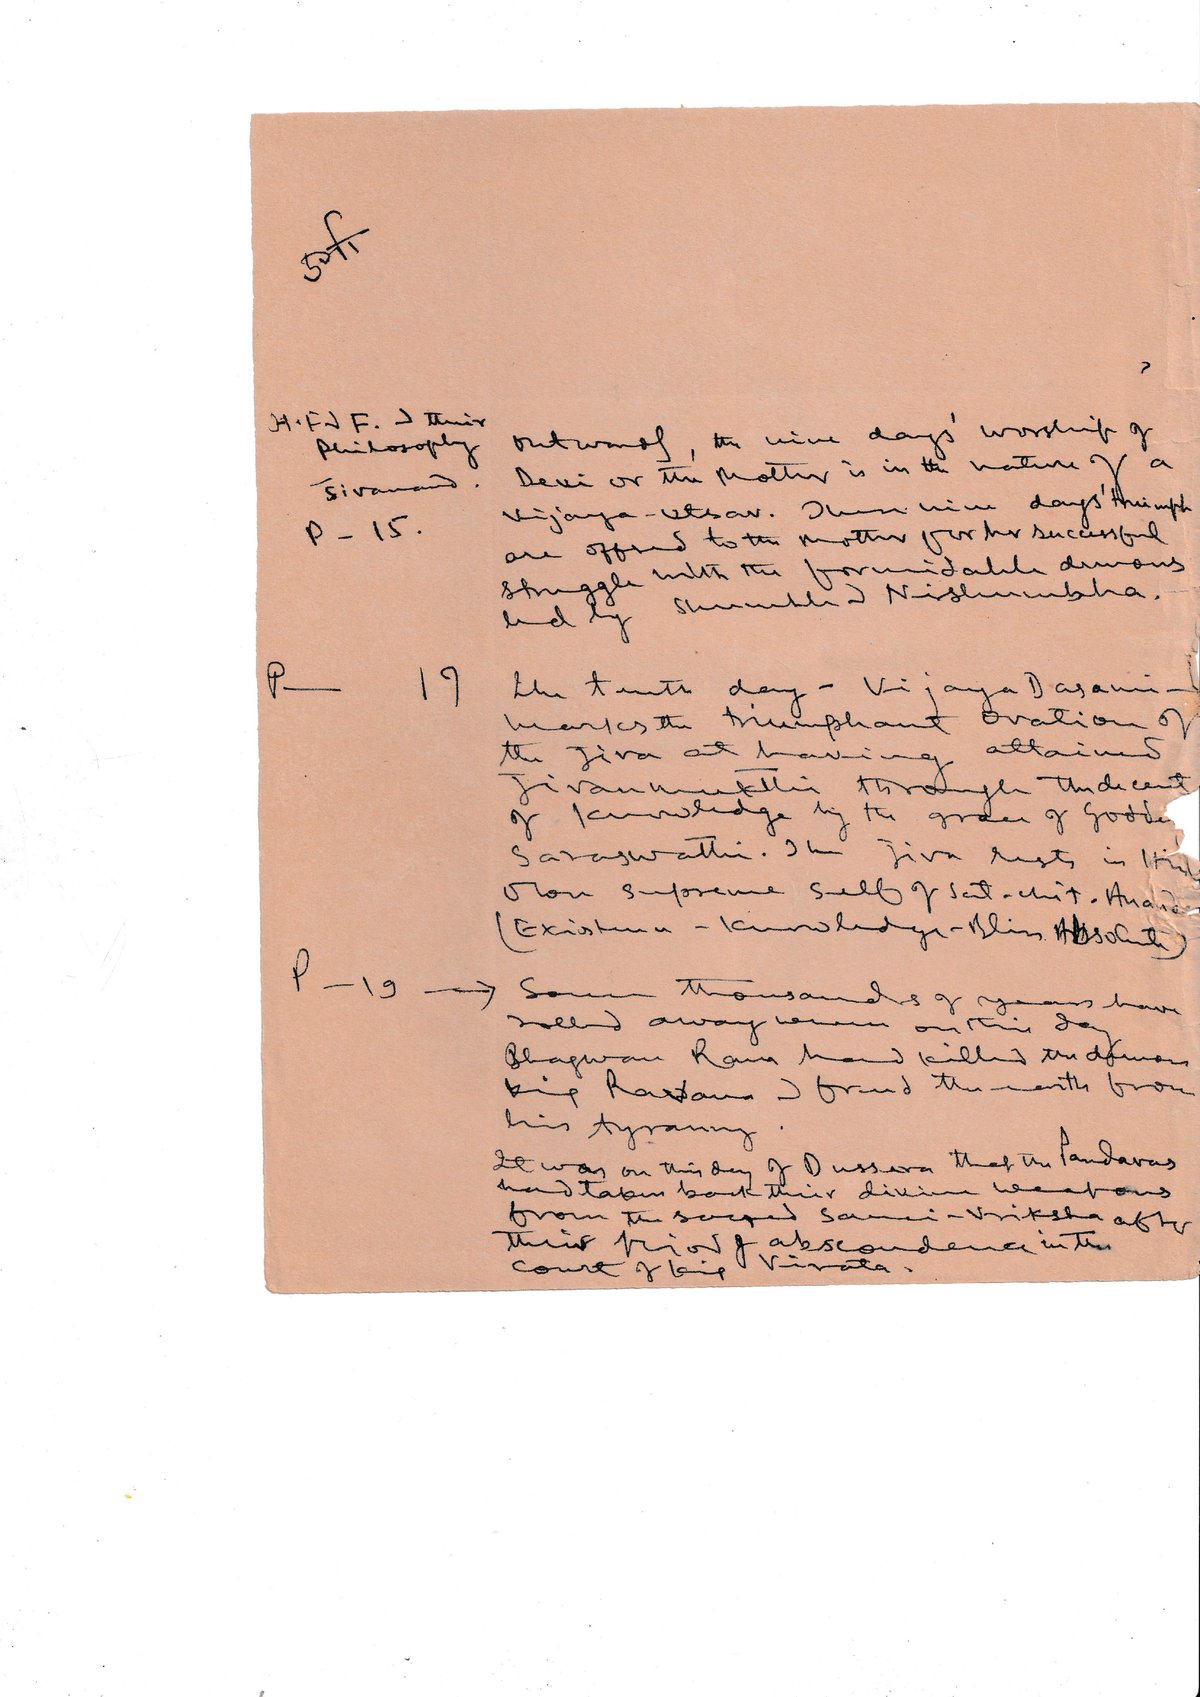 H.F & F. & their
Philosophy
Sivanand.
P - 15.
outward, the nine days' worship of
Devi or the Mother is in the nature of a
Vijaya-utsav. These nine days' triumph
are offered to the Mother for her successful
struggle with the formidable demons
led by Shumbha & Nishumbha.
P— 17
The tenth day - Vijaya Dasami -
marks the triumphant ovation of
the Jiva at having attained
Jivanmukthi through the decent
of knowledge by the grace of Godde
Saraswathi. The Jiva rests in His
own supreme self of Sat-chit-Anand
(Existence - Knowledge - Bliss Absolute)
P - 19 → Some thousands of years have
rolled away when on this day
Bhagwan Ram had killed the demon
king Ravana & freed the earth from
his tyranny.
It was on this day of Dussera that the Pandavas
had taken back their divine weapons
from the sacred Sami-Vriksha after
their period of abscondence in the
court of king Virata.